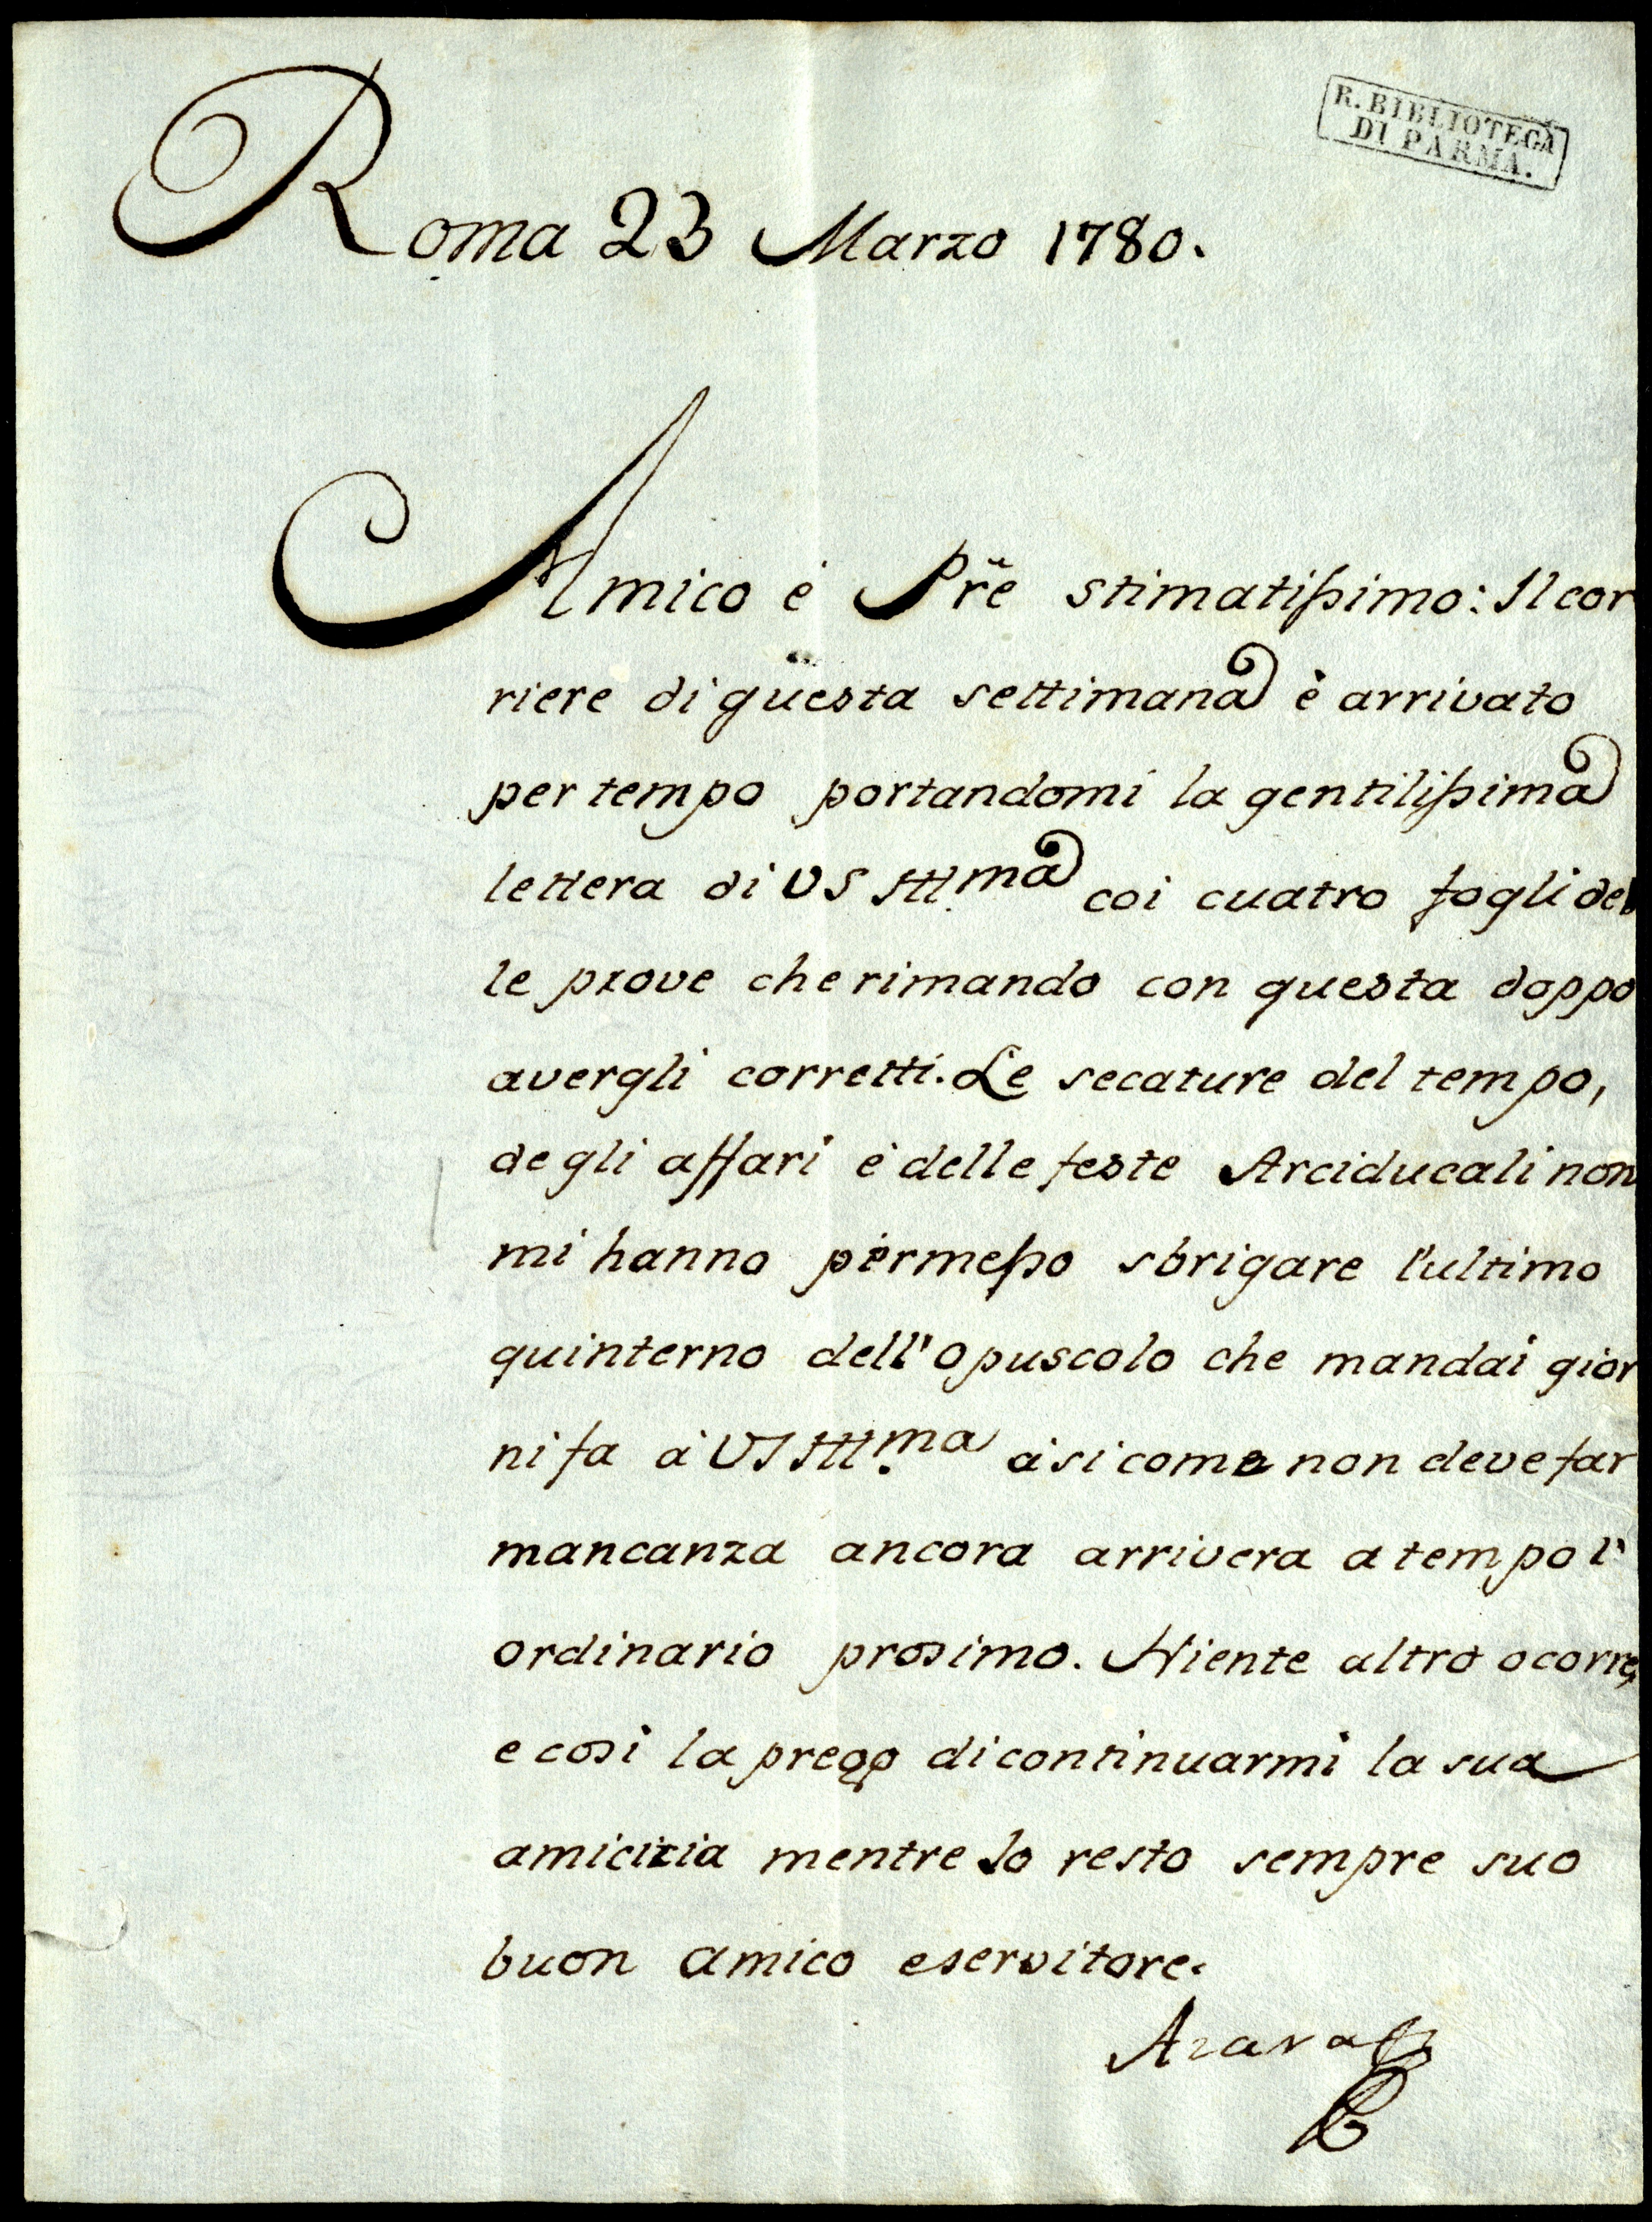 R. BIBLIOTECA
DI PARMA.
Roma 23 Marzo 1780.
Amico é Pr̃e stimatissimo: Il cor
riere di questa settimana è arrivato
per tempo portandomi la gentilissima
lettera di VS Illma coi cuatro fogli del
le prove che rimando con questa doppo
avergli corretti. Le secature del tempo,
degli affari è delle feste Arciducali non
mi hanno permesso sbrigare l'ultimo
quinterno dell'opuscolo che mandai gior
ni fa à VS Illma à sicome non deve far
mancanza ancora arrivera a tempo l'
ordinario prosimo. Niente altro ocorre,
e cosi la prego di continuarmi la sua
amicizia mentre Io resto sempre suo
buon amico e servitore.
Azara